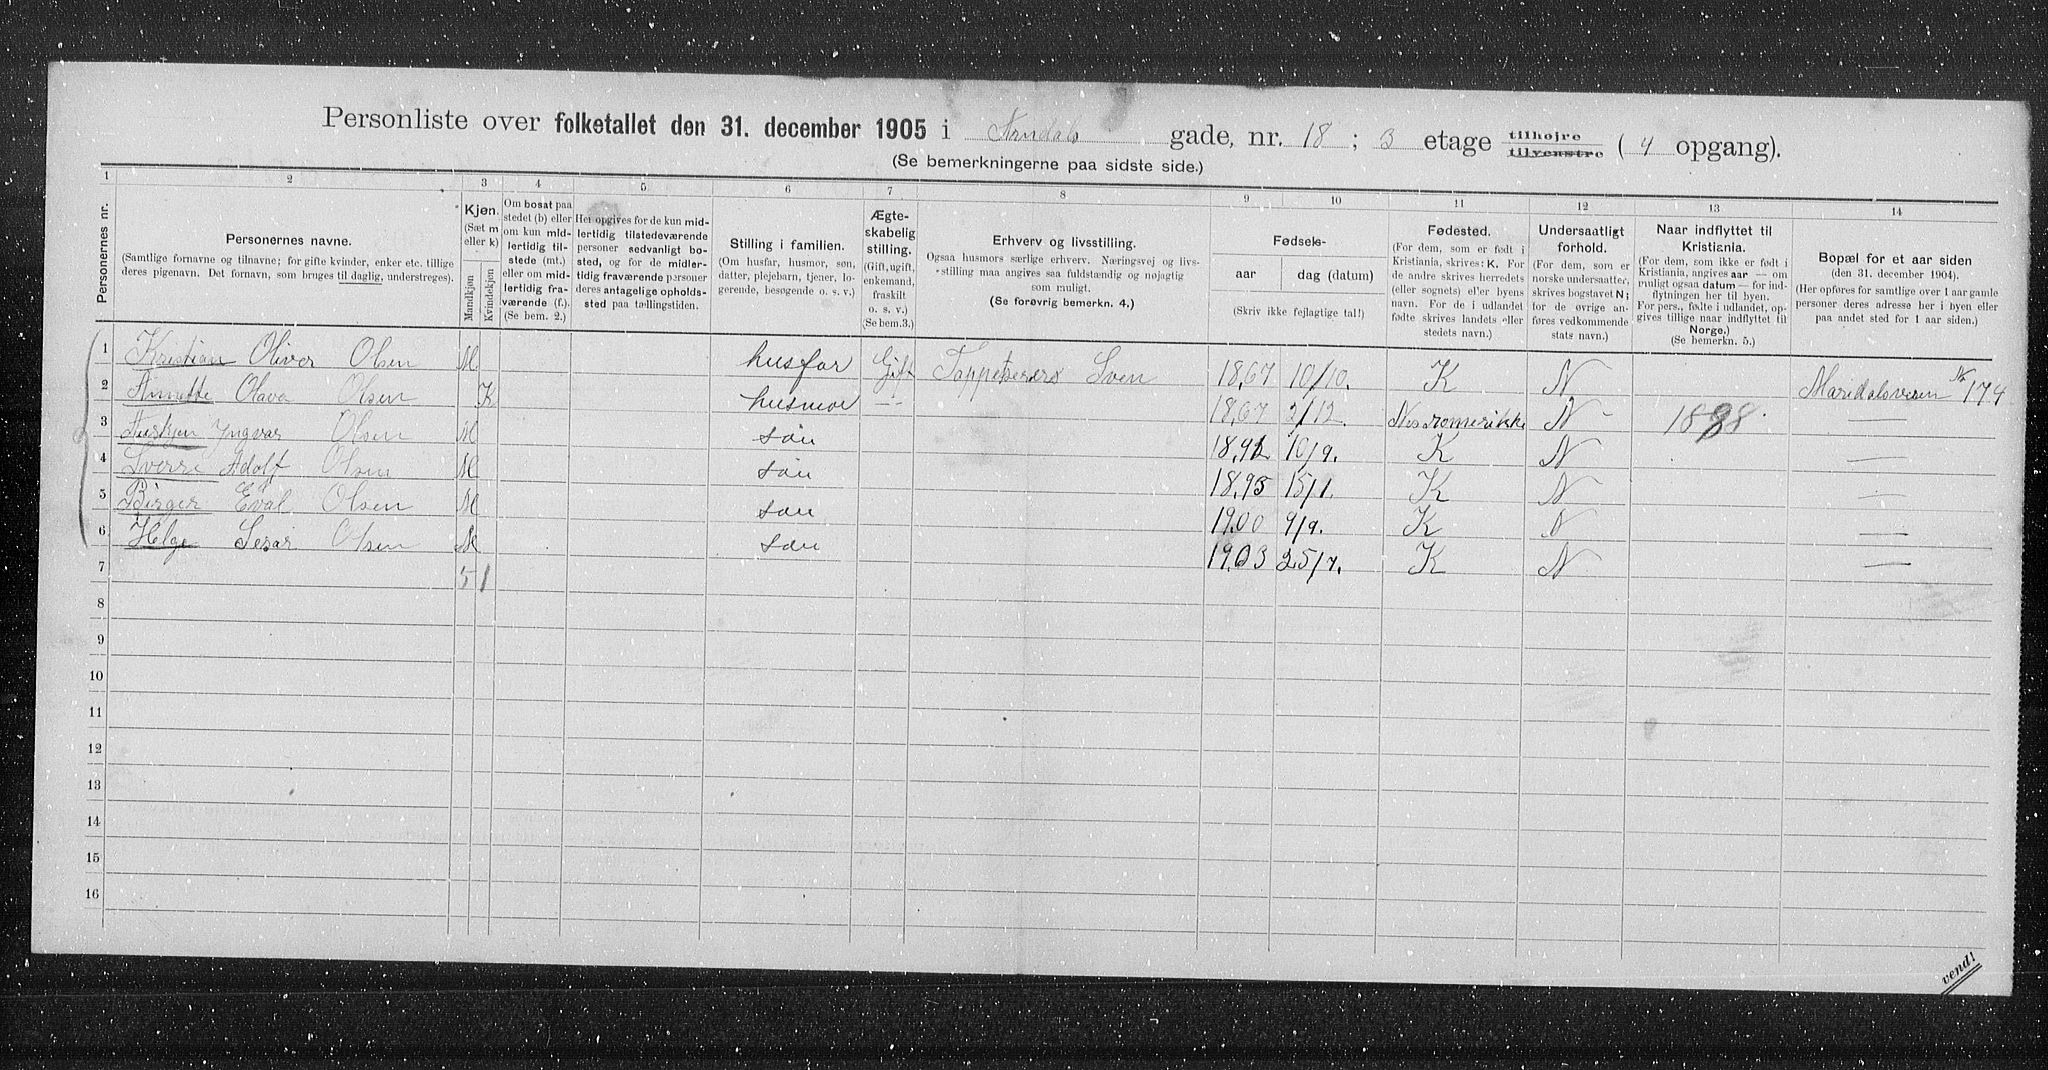 Personliste over folketallet den 31. december 1905 i Arndals gade, nr. 18 ; 3 etage tilhøjre tilvenstre ( 4 opgang).
(Se bemerkningerne paa sidste side.)
1 2 3 4 5 6 7 8 9 10 11 12 13 14
Personernes nr.
Personernes navne.
(Samtlige fornavne og tilnavne; for gifte kvinder, enker etc. tillige
deres pigenavn. Det fornavn, som bruges til daglig, understreges).
Kjøn.
(Sæt m
eller k)
Mandkjøn
Kvindekjøn
Om bosat paa
stedet (b) eller
om kun mid-
lertidig til-
stede (mt.)
eller om mid-
lertidig fra-
værende (f.).
(Se bem. 2.)
Her opgives for de kun mid-
lertidig tilstedeværende
personer sedvanligt bo-
sted, og for de midler-
tidig fraværende personer
deres antagelige opholds-
sted paa tællingstiden.
Stilling i familien.
(Om husfar, husmor, søn,
datter, plejebarn, tjener, lo-
gerende, besøgende o. s. v.)
Ægte-
skabelig
stilling.
(Gift, ugift,
enkemand,
fraskilt
o. s. v.)
(Se bem.3.)
Erhverv og livsstilling.
Ogsaa husmors særlige erhverv. Næringsvej og livs-
stilling maa angives saa fuldstændig og nøjagtig
som muligt.
(Se forøvrig bemerkn. 4.)
Fødsels-
aar dag (datum)
(Skriv ikke fejlagtige tal!)
Fødested.
(For dem, som er født i
Kristiania, skrives: K. For
de andre skrives herredets
(eller sognets) eller byens
navn. For de i udlandet
fødte skrives landets eller
stedets navn.)
Undersaatligt
forhold.
(For dem, som er
norske undersaatter,
skrives bogstavet N;
for de øvrige an-
føres vedkommende
stats navn.)
Naar indflyttet til
Kristiania.
(For dem, som ikke er født i
Kristiania, angives aar — om
muligt ogsaa datum — for ind-
flytningen her til byen.
For pers., fødte i udlandet, op-
gives tillige naar indflyttet til
Norge.)
(Se bemerkn. 5.)
Bopæl for et aar siden
(den 31. december 1904).
(Her opføres for samtlige over 1 aar gamle
personer deres adresse her i byen eller
paa andet sted for 1 aar siden.)
1 Kristian Oliver Olsen M husfar Gift Svен 18,67 10/10. K N Maridalsveien No 174
2 Annette Olava Olsen K husmor -"- 18,67 2/12. Nes romerikke N 1888. —
3 Yngvar Olsen M søn 18,92 10/9. K N —
4 Sverre Adolf Olsen M søn 18,95 15/1. K N —
5 Birger Eval Olsen M søn 19,00 9/9. K N —
6 Helge Sesar Olsen M søn 19,03 25/7. K N —
7 5 1
8
9
10
11
12
13
14
15
16
vend!